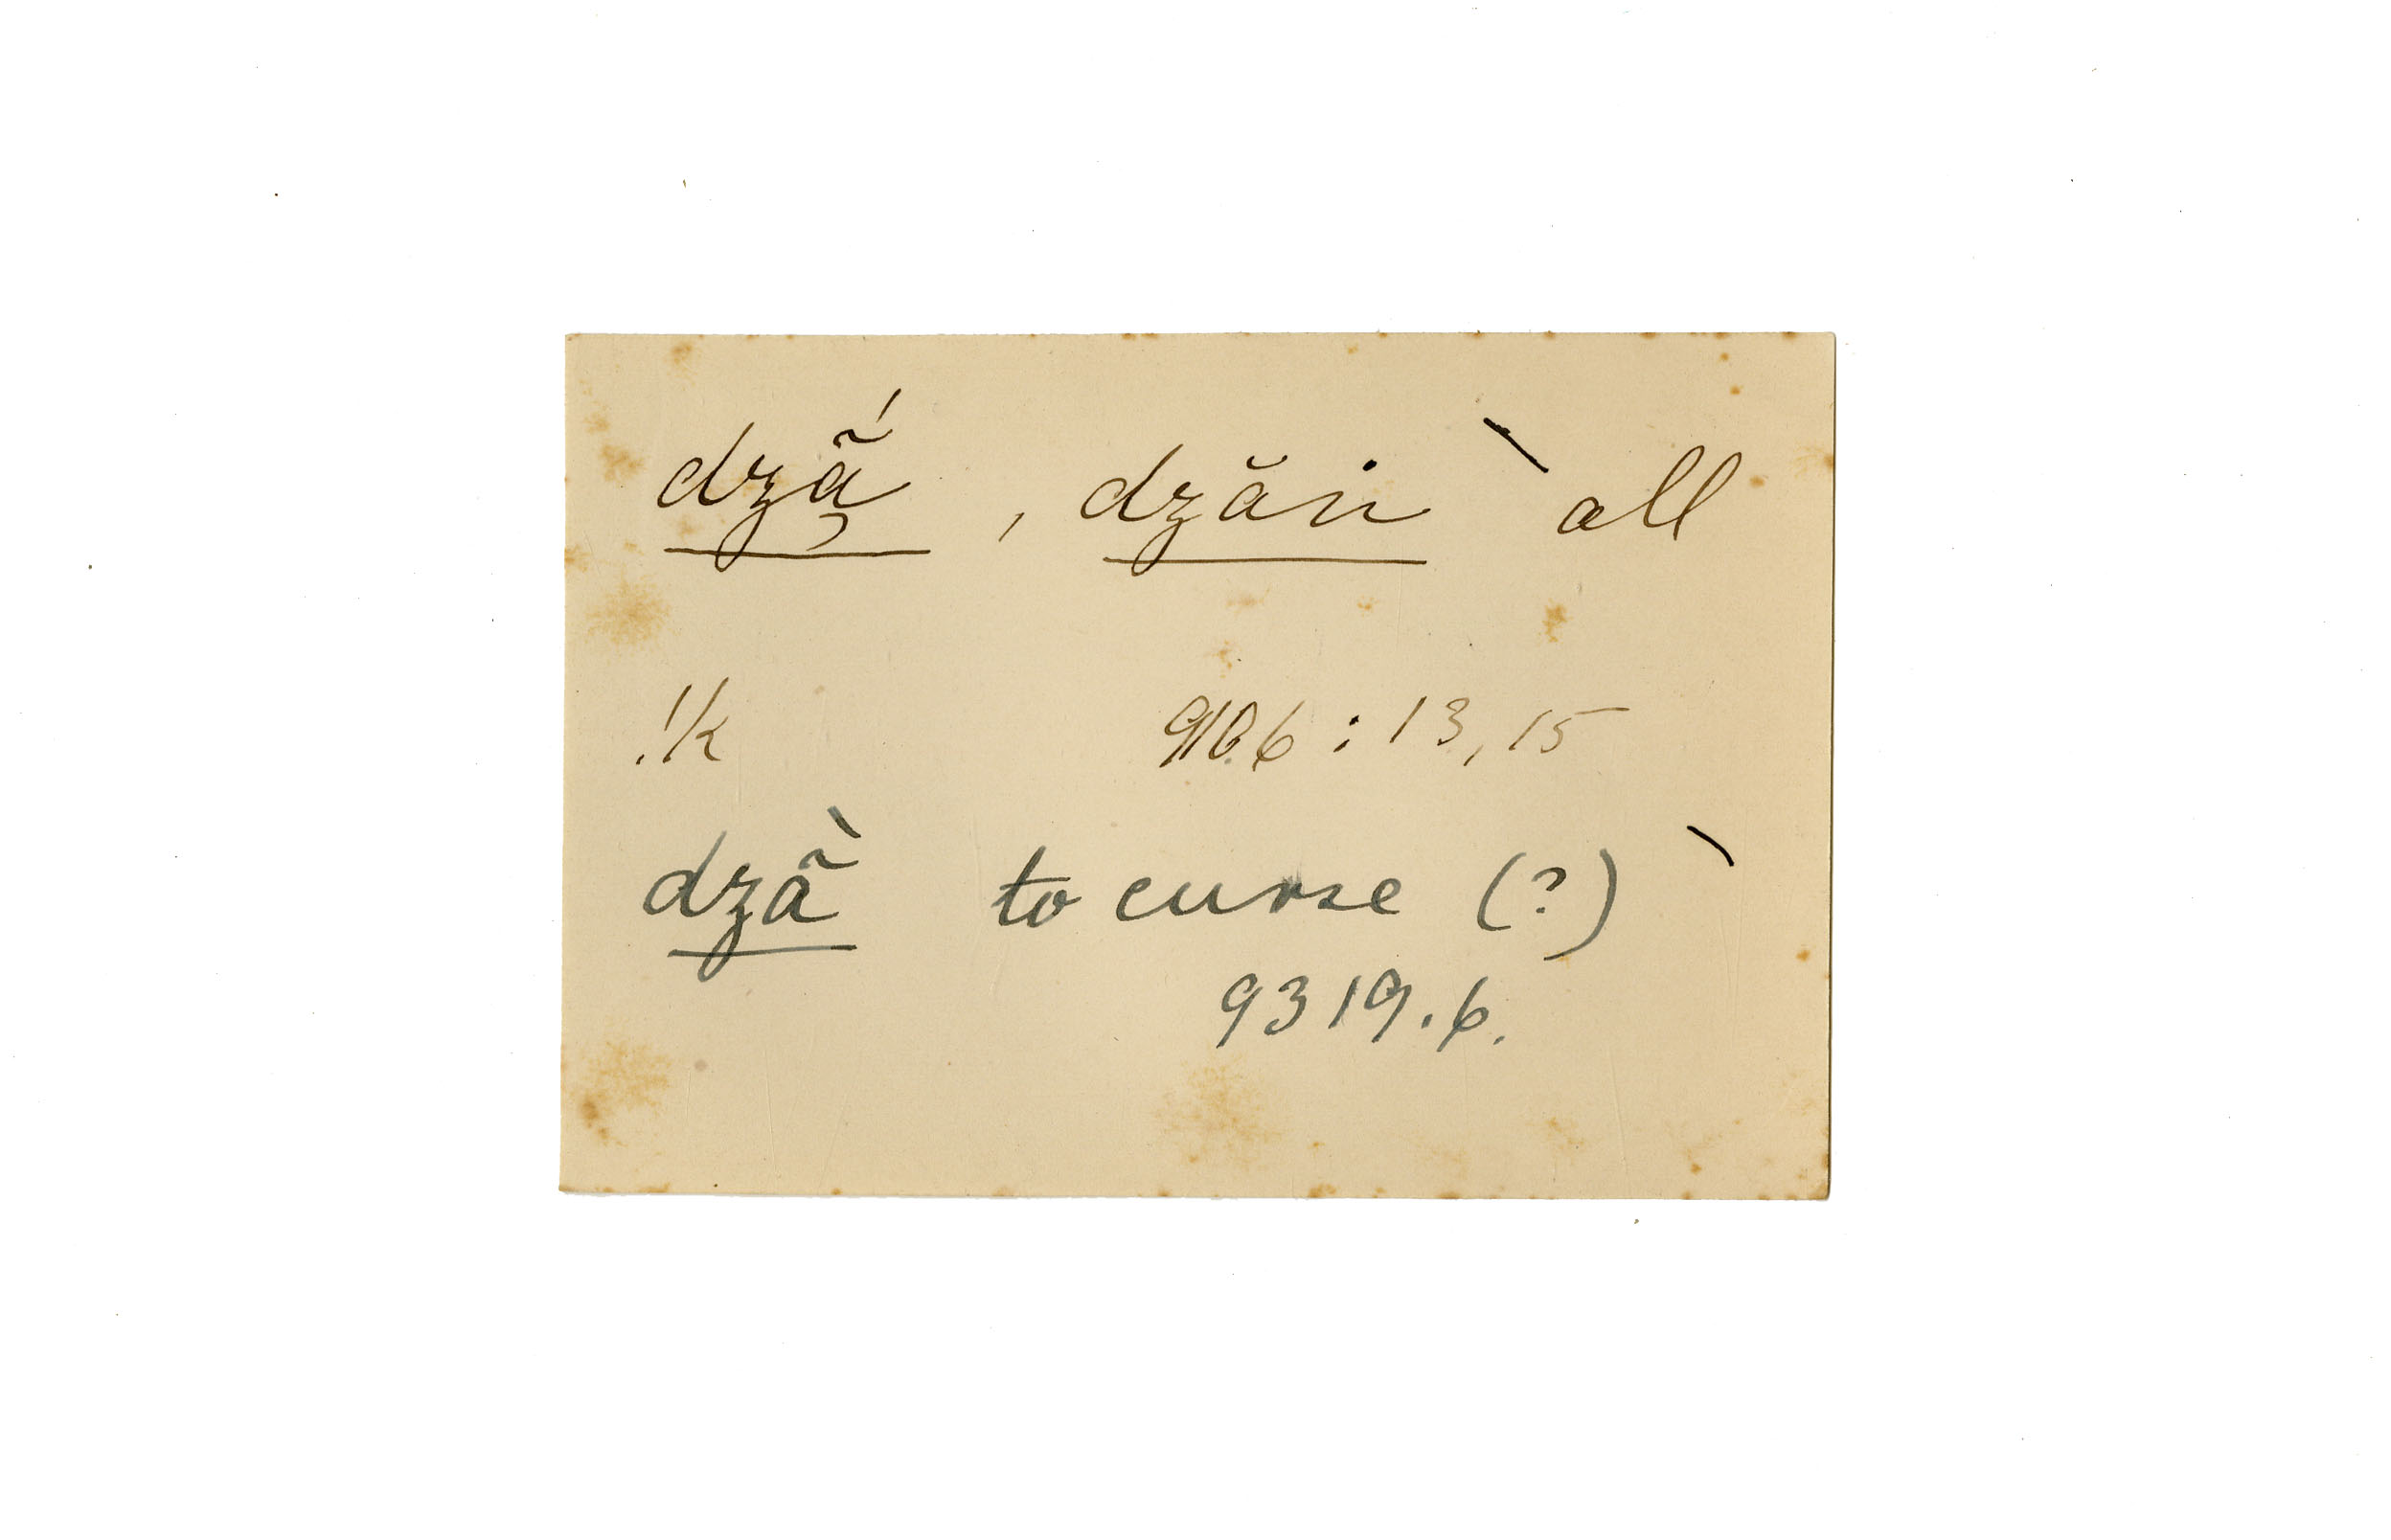 dzą̃́ , dzăn ̀ all
!k 9106 : 13, 15
dzã̀ to curse (?) ̀
9319.6.